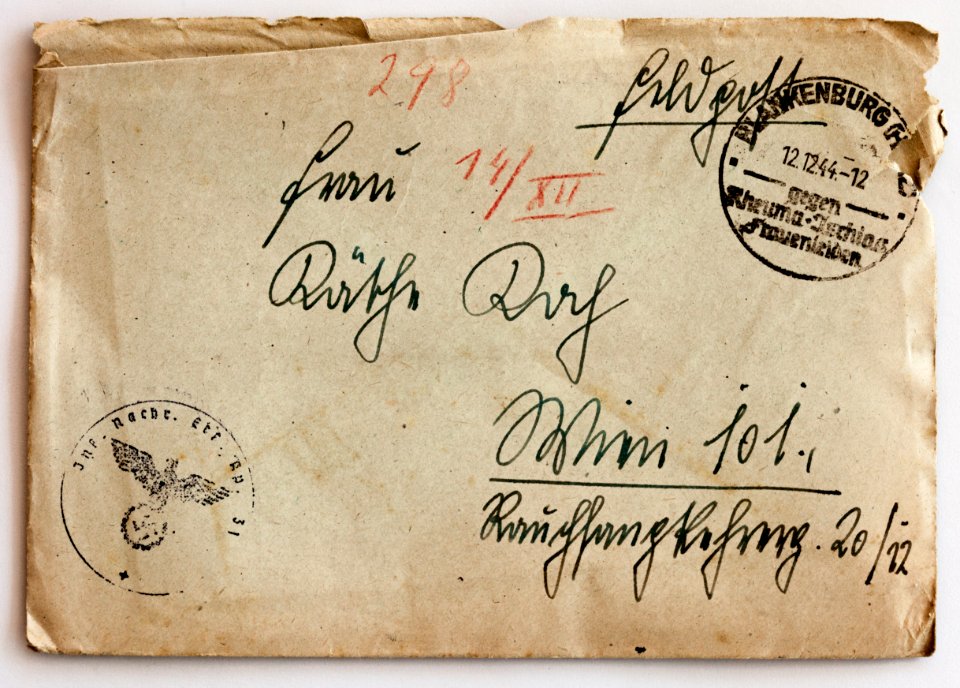 298
Feldpost
BLANKENBURG (H
12.12.44.-12
gegen
Rheuma-Ischias
Frauenleiden
Frau
14/XII
Käthe Koch
Wien 101.,
Rauchfangkehrerg. 20/12
Inf. Nachr. Ers. Kp 31